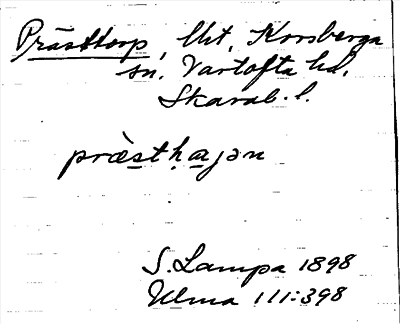 Prästtorp, Uht, Korsberga
sn. Vartofta hd.
Skarab. l.
præ̀stḥajən
S. Lampa 1898
Ulma 111:398